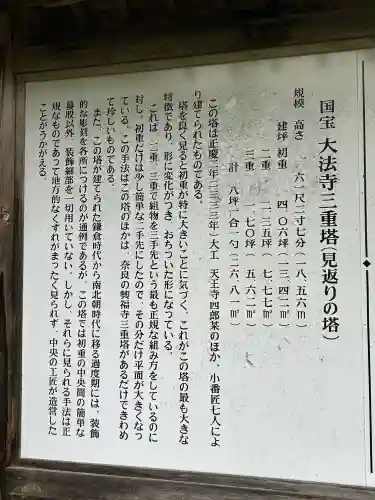 国宝 大法寺三重塔(見返りの塔)
規模 高さ 六一尺二寸七分(一八.五六m)
建坪 初重 四.〇六坪(一三.四二㎡)
二重 二.三五坪(七.七七㎡)
三重 一.七〇坪(五.六二㎡)
計 八坪一合一勺(二六.八一㎡)
この塔は正慶二年(一三三三年)大工 天王寺四郎某のほか、小番匠七人によ
り建てられたものである。
塔を良く見ると初重が特に大きいことに気づく、これがこの塔の最も大きな
特徴であり、形に変化がつき、おちついた形になっている。
これは、二重、三重で組物を三手先という最も正規な組み方をしているのに
対し、初重だけは少し簡単な二手先にしたので、その分だけ平面が大きくなっ
ている。この手法はこの塔のほかは、奈良の興福寺三重塔があるだけできわめ
て珍しいものである。
また、この塔が建てられた鎌倉時代から南北朝時代に移る過度期には、装飾
的な彫刻を各所につけるのが通例であるが、この塔では初重の中央間の簡単な
蟇股以外、装飾細部を一切用いていない。しかし、それらに見られる手法は正
規なものであって地方的なくずれがまったく見られず、中央の工匠が造営した
ことがうかがえる。